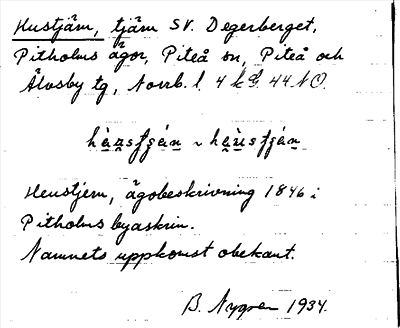 Hustjärn, tjärn SV. Degerberget,
Pitholms ägor, Piteå sn, Piteå och
Älvsby tg, Norrb. l. 44 NO.
Heustjern, ägobeskrivning 1846 i
Pitholms byaskrin.
Namnets uppkomst obekant.
B. Nygren 1934.